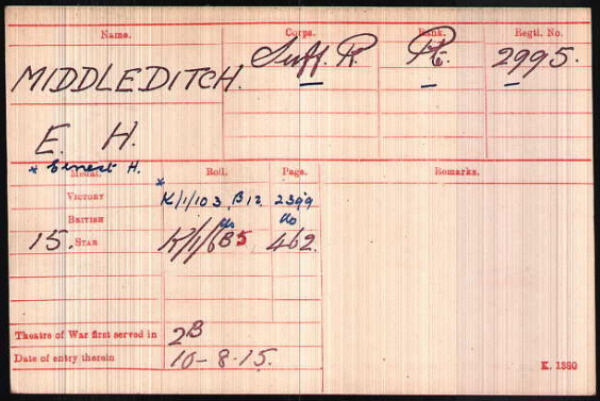 Name. Corps. Rank. Regtl. No.
MIDDLEDITCH. Suff. R. Pte. 2995.
E. H.
* Ernest H.
Medal. Roll. Page. Remarks.
VICTORY * K/1/103. B12. 2399
BRITISH do do
15. STAR K/1/6B5 462.
Theatre of War first served in 2B
Date of entry therein 10-8-15.
K. 1380